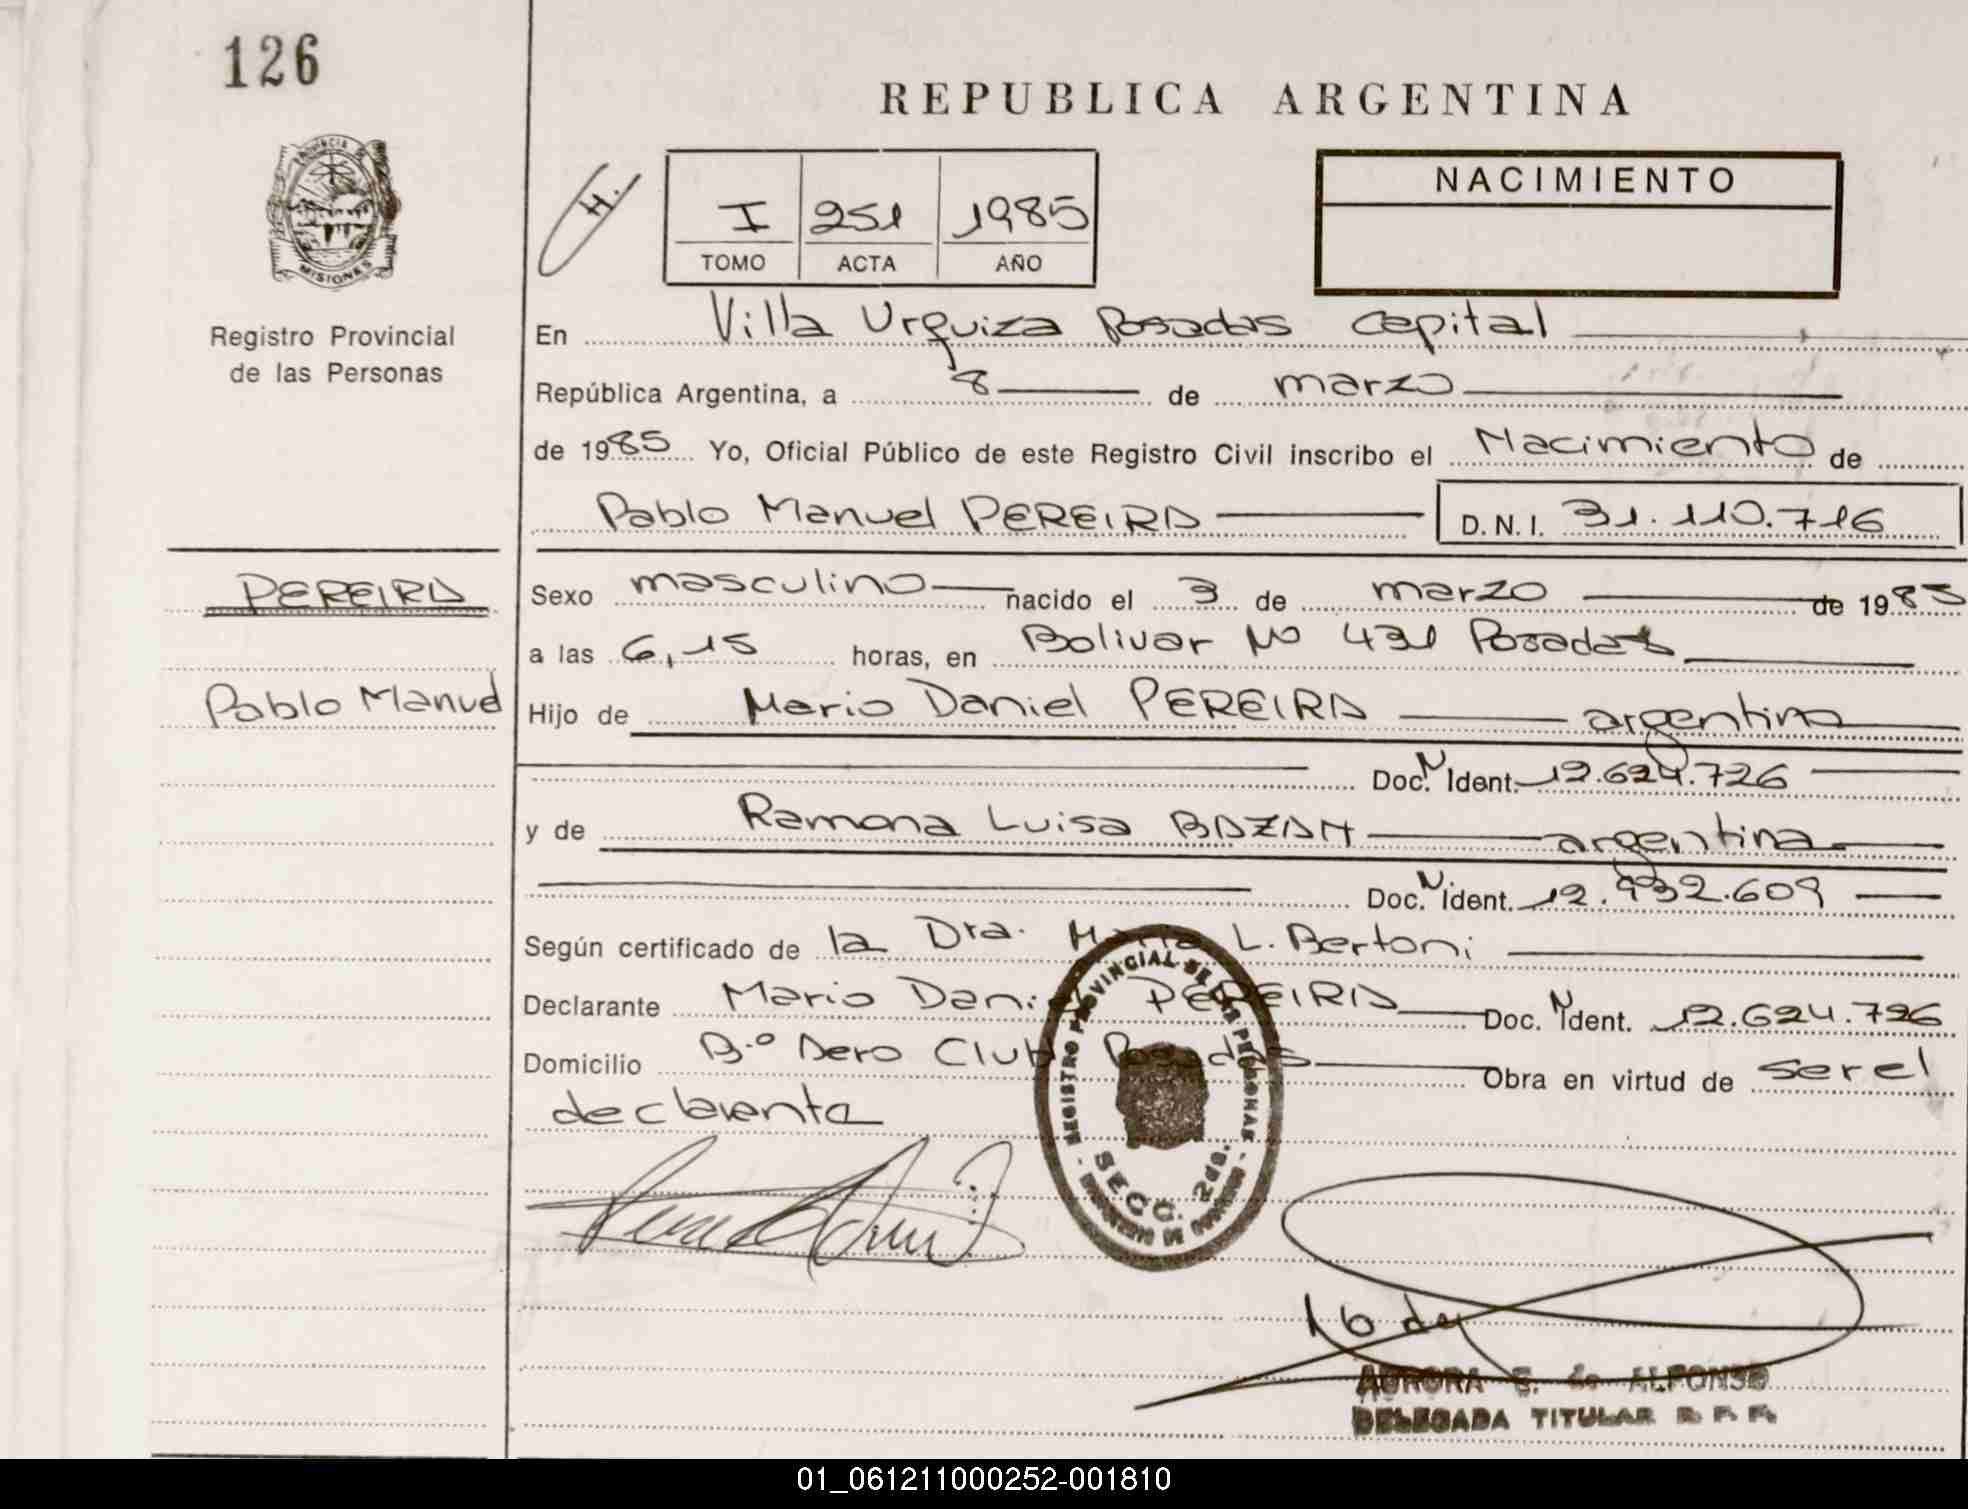 126
REPUBLICA ARGENTINA
PROVINCIA DE
MISIONES
Registro Provincial
de las Personas
H.
I 251 1985
TOMO ACTA AÑO
NACIMIENTO
En Villa Urquiza Posadas Capital
República Argentina, a 8 de marzo
de 1985 Yo, Oficial Público de este Registro Civil inscribo el Nacimiento de
Pablo Manuel PEREIRA D.N.I. 31.110.716
PEREIRA
Pablo Manuel
Sexo masculino nacido el 3 de marzo de 1985
a las 6,15 horas, en Bolivar Nº 431 Posadas
Hijo de Mario Daniel PEREIRA argentino
Doc. N Ident. 12.624.726
y de Ramona Luisa BAZAN argentina
Doc. N ident. 12.932.609
Según certificado de la Dra. Maria L. Bertoni
Declarante Mario Daniel PEREIRA Doc. N Ident. 12.624.726
Domicilio B.º Aero Club Posadas Obra en virtud de ser el
declarante
REGISTRO PROVINCIAL DE LAS PERSONAS
SECC. 2da.
AURORA E. de ALFONSO
DELEGADA TITULAR R. P. P.
01_061211000252-001810